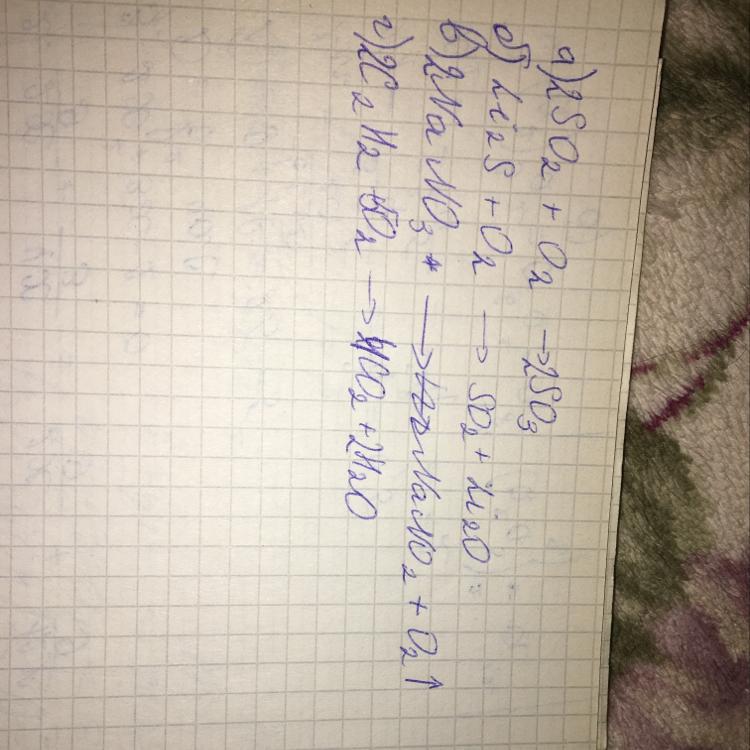 а) 2SO₂ + O₂ → 2SO₃
б) Li₂S + O₂ → SO₂ + Li₂O
в) 2NaNO₃ → NaNO₂ + O₂↑
г) 2C₂H₂ 5O₂ → 4CO₂ + 2H₂O